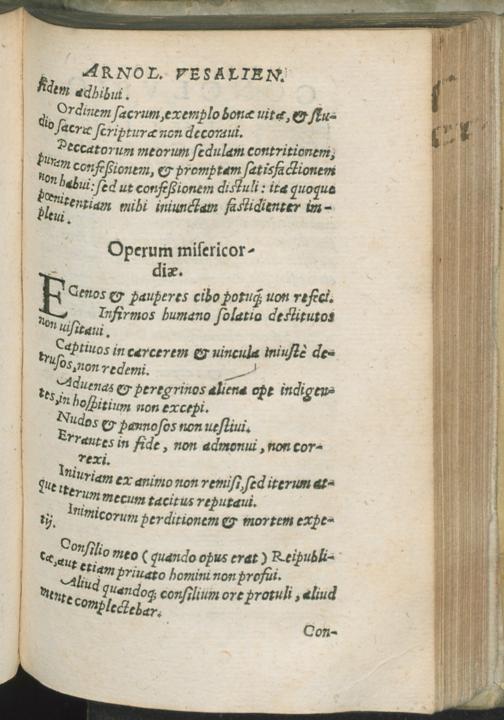 ARNOL. VESALIEN.
fidem adhibui.
Ordinem sacrum, exemplo bonæ uitæ, & stu-
dio sacræ scripturæ non decoraui.
Peccatorum meorum sedulam contritionem,
puram confeßionem, & promptam satisfactionem
non habui: sed ut confeßionem distuli: ita quoque
pœnitentiam mihi iniunctam fastidienter im-
pleui.
Operum misericor-
diæ.
EGenos & pauperes cibo potuq́; uon refeci.
Infirmos humano solatio destitutos
non uisitaui.
Captiuos in carcerem & uincula iniustè de-
trusos, non redemi.
Aduenas & peregrinos aliena ope indigen-
tes, in hospitium non excepi.
Nudos & pannosos non uestiui.
Errantes in fide, non admonui, non cor-
rexi.
Iniuriam ex animo non remisi, sed iterum at-
que iterum mecum tacitus reputaui.
Inimicorum perditionem & mortem expe-
tij.
Consilio meo (quando opus erat) Reipubli-
cæ, aut etiam priuato homini non profui.
Aliud quandoq; consilium ore protuli, aliud
mente complectebar.
Con-